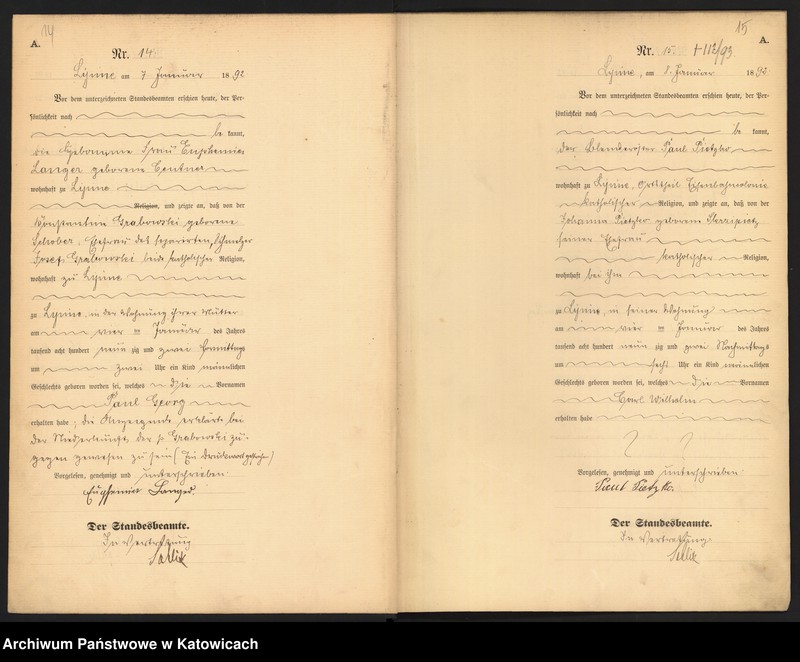 14
A.
Nr. 14
Lipine am 7 Januar 1892
Vor dem unterzeichneten Standesbeamten erschien heute, der Per-
sönlichkeit nach
be kannt,
die Hebamme Frau
Langer geborene
wohnhaft zu Lipine
Religion, und zeigte an, daß von der
Konstantine Grabowski geborene
Schober, Ehefrau des separirten
Josef Grabowski beide katholischer Religion,
wohnhaft zu Lipine
zu Lipine, in der Wohnung ihrer Mutter
am vier ten Januar des Jahres
tausend acht hundert neun zig und zwei Vormittags
um zwei Uhr ein Kind männlichen
Geschlechts geboren worden sei, welches die Vornamen
Paul Georg
erhalten habe; die Anzeigende erklärte bei
der Niederkunft der p Grabowski zu-
gegen gewesen zu sein (Ein Druckwort gestrichen)
Vorgelesen, genehmigt und unterschrieben
Langer.
Der Standesbeamte.
In Vertretung
15
A.
Nr. 15 +112/93
Lipine, am 8. Januar 1892
Vor dem unterzeichneten Standesbeamten erschien heute, der Per-
sönlichkeit nach
be kannt,
der Blenderöster Paul Pietzko
wohnhaft zu Lipine, Ortstheil Eisenbahncolonie
katholischer Religion, und zeigte an, daß von der
Johanna Pietzko geborene
seiner Ehefrau
katholischer Religion,
wohnhaft bei ihm
zu Lipine in seiner Wohnung
am vier ten Januar des Jahres
tausend acht hundert neun zig und zwei Nachmittags
um sechs Uhr ein Kind männlichen
Geschlechts geboren worden sei, welches die Vornamen
Carl Wilhelm
erhalten habe
Vorgelesen, genehmigt und unterschrieben
Paul Pietzko.
Der Standesbeamte.
In Vertretung.
Archiwum Państwowe w Katowicach